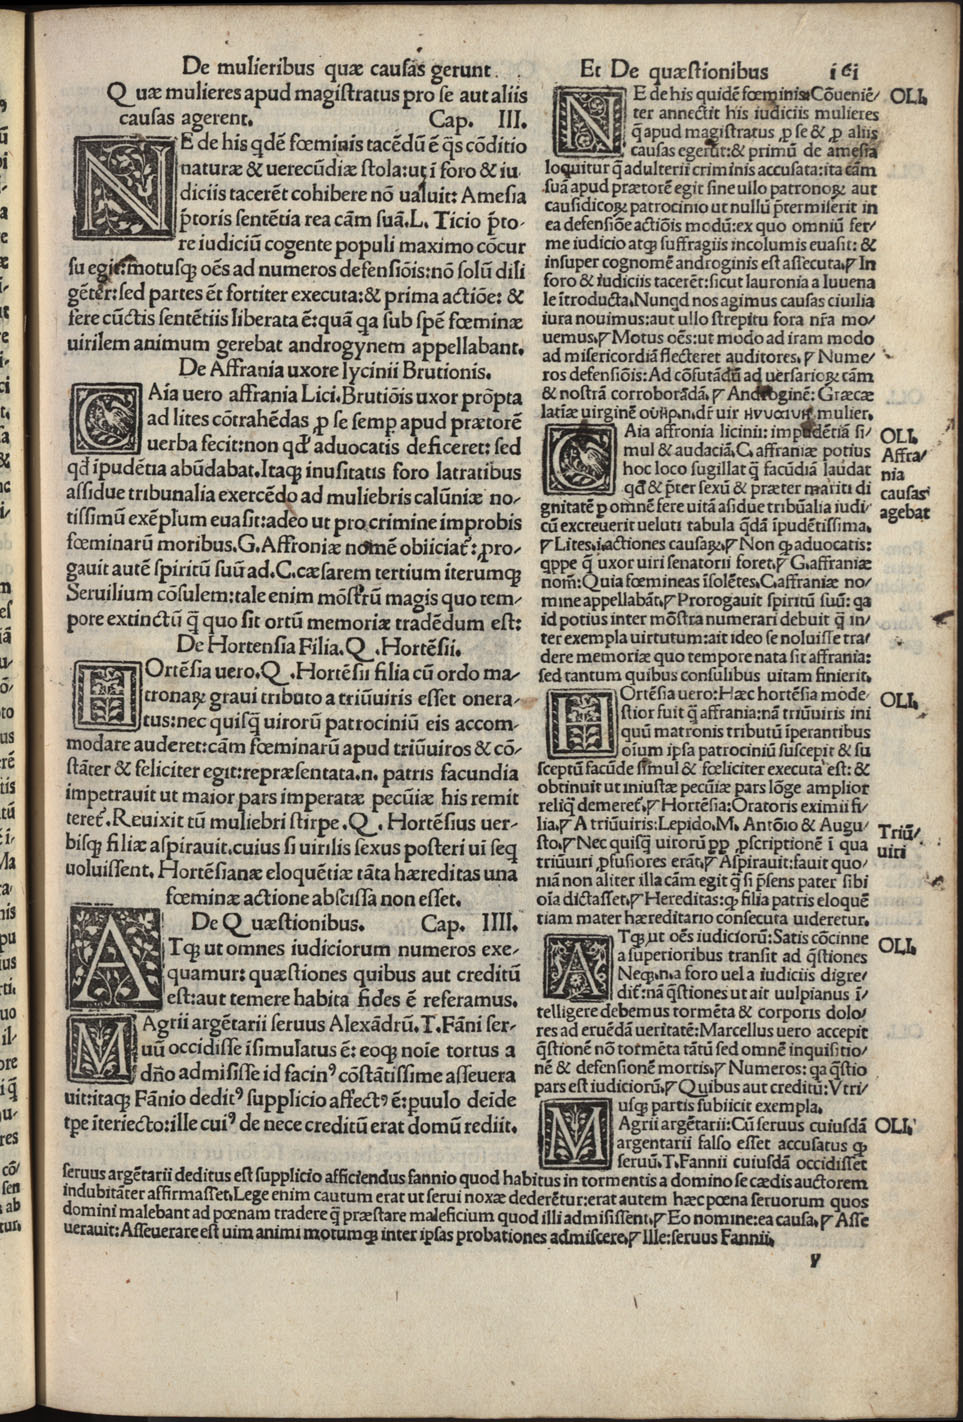 De mulieribus quæ causas gerunt
Quæ mulieres apud magistratus pro se aut aliis
causas agerent. Cap. III.
NE de his qdē fœminis tacēdū ē q̄s cōditio
naturæ & uerecūdiæ stola: ut ī foro & iu
diciis tacerēt cohibere nō ualuit: Amesia
p̄toris sentētia rea cām suā. L. Ticio p̄to-
re iudiciū cogente populi maximo cōcur
su egit: motusq; oēs ad numeros defensiōis: nō solū dili
gēter: sed partes ēt fortiter executa: & prima actiōe: &
fere cūctis sentētiis liberata ē: quā qa sub spē fœminæ
uirilem animum gerebat androgynem appellabant.
De Affrania uxore lycinii Brutionis.
CAia uero affrania Lici. Brutiōis uxor prōpta
ad lites cōtrahēdas p se semp apud prætorē
uerba fecit: non qđ aduocatis deficeret: sed
qđ īpudētia abūdabat. Itaq; inusitatis foro latratibus
assidue tribunalia exercēdo ad muliebris calūniæ no-
tissimū exēplum euasit: adeo ut pro crimine improbis
fœminarū moribus. G. Affroniæ nomē obiiciat̄: pro-
gauit autē spiritū suū ad. C. cæsarem tertium iterumq;
Seruilium cōsulem: tale enim mōstrū magis quo tem-
pore extinctū q̄ quo sit ortū memoriæ tradēdum est:
De Hortensia Filia. Q. Hortēsii.
HOrtēsia uero. Q. Hortēsii filia cū ordo ma-
tronaꝝ graui tributo a triūuiris esset onera-
tus: nec quisq̄ uirorū patrociniū eis accom-
modare auderet: cām fœminarū apud triūuiros & cō-
stāter & feliciter egit: repræsentata. n. patris facundia
impetrauit ut maior pars imperatæ pecūiæ his remit
teret̄. Reuixit tū muliebri stirpe. Q. Hortēsius uer-
bisq; filiæ aspirauit. cuius si uirilis sexus posteri ui seq
uoluissent. Hortēsianæ eloquētiæ tāta hæreditas una
fœminæ actione abscissa non esset.
De Quæstionibus. Cap. IIII.
ATq; ut omnes iudiciorum numeros exe-
quamur: quæstiones quibus aut creditū
est: aut temere habita fides ē referamus.
MAgrii argētarii seruus Alexādrū. T. Fāni ser-
uū occidisse īsimulatus ē: eoq; noīe tortus a
dño admisisse id facinꝰ cōstātissime asseuera
uit: itaq; Fānio deditꝰ supplicio affectꝰ ē: puulo deīde
tpe īteriecto: ille cuiꝰ de nece creditū erat domū rediit.
Et De quæstionibus i6i
NE de his quidē fœminis: Cōueniē- OLI.
ter annectit his iudiciis mulieres
q̄ apud magistratus p se & p aliis
causas egerūt: & primū de amesia
loquitur q̄ adulterii criminis accusata: ita cām
suā apud prætorē egit sine ullo patronoꝝ aut
causidicoꝝ patrocinio ut nullū p̄termiserit in
ea defensiōe actiōis modū: ex quo omniū fer-
me iudicio atq; suffragiis incolumis euasit: &
insuper cognomē androginis est assecuta. ꝑ In
foro & iudiciis tacerēt: sicut lauronia a Iuuena
le ītroducta. Nunqd nos agimus causas ciuilia
iura nouimus: aut ullo strepitu fora nr̄a mo-
uemus. ꝑ Motus oēs: ut modo ad iram modo
ad misericordiā flecteret auditores. ꝑ Nume-
ros defensiōis: Ad cōfutādū ad uersarioꝝ cām
& nostrā corroborādā. ꝑ Androginē: Græcæ
latiæ uirginē mulier.
CAia affronia licinii: impudētiā si- OLI.
mul & audaciā. C. affraniæ potius Affra-
hoc loco sugillat q̄ facūdiā laudat nia
qđ & p̄ter sexū & præter mariti di causas
gnitatē p omnē fere uitā asidue tribūalia iudi- agebat
cū excreuerit ueluti tabula q̄dā īpudētissima.
ꝑ Lites. i. actiones causaꝝ. ꝑ Non q; aduocatis:
qppe q̄ uxor uiri senatorii foret. ꝑ G. affraniæ
nom̄: Quia fœmineas īsolētes. C. affraniæ no-
mine appellabāt. ꝑ Prorogauit spiritū suū: qa
id potius inter mōstra numerari debuit q̄ in-
ter exempla uirtutum: ait ideo se noluisse tra-
dere memoriæ quo tempore nata sit affrania:
sed tantum quibus consulibus uitam finierit.
HOrtēsia uero: Hæc hortēsia mode- OLI.
stior fuit q̄ affrania: nā triūuiris ini
quū matronis tributū īperantibus
oīum ipsa patrociniū suscepit & su
sceptū facūde simul & fœliciter executa est: &
obtinuit ut iniustæ pecūiæ pars lōge amplior
reliq̄ demeret̄. ꝑ Hortēsia: Oratoris eximii fi-
lia. ꝑ A triūuiris: Lepido. M. Antōio & Augu- Triū-
sto. ꝑ Nec quisq̄ uirorū pp pscriptionē ī qua uiri
triūuiri pfusiores erāt. ꝑ Aspirauit: fauit quo-
niā non aliter illa cām egit q̄ si p̄sens pater sibi
oīa dictasset. ꝑ Hereditas: q; filia patris eloquē
tiam mater hæreditario consecuta uideretur.
ATq; ut oēs iudiciorū: Satis cōcinne OLI.
a superioribus transit ad q̄stiones
Neq;. n. a foro uel a iudiciis digre-
dit̄: nā q̄stiones ut ait uulpianus ī-
telligere debemus tormēta & corporis dolo-
res ad eruēdā ueritatē: Marcellus uero accepit
q̄stionē nō tormēta tātū sed omnē inquisitio-
nē & defensionē mortis. ꝑ Numeros: qa q̄stio
pars est iudiciorū. ꝑ Quibus aut creditū: Vtri-
usq; partis subiicit exempla.
MAgrii argētarii: Cū seruus cuiusdā OLI.
argentarii falso esset accusatus q;
seruū. T. Fannii cuiusdā occidisset
seruus argētarii deditus est supplicio afficiendus fannio quod habitus in tormentis a domino se cædis auctorem
indubitāter affirmasset. Lege enim cautum erat ut serui noxæ dederētur: erat autem hæc pœna seruorum quos
domini malebant ad pœnam tradere q̄ præstare maleficium quod illi admisissent. ꝑ Eo nomine: ea causa. ꝑ Asse
uerauit: Asseuerare est uim animi motumq; inter ipsas probationes admiscere. ꝑ Ille: seruus Fannii.
y